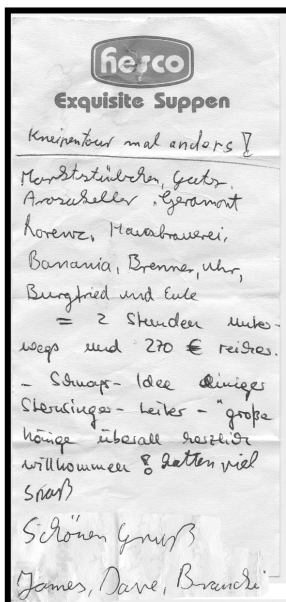 hesco
Exquisite Suppen
Kneipentour mal anders!
Marktstübchen, Gretz,
Arosakeller, Geramont
Lorenz, Hausbrauerei,
Banania, Brenner, Uhr,
Burgfried und Eule
= 2 Stunden unter-
wegs und 270 € reicher.
- Schnaps-Idee einiger
Sternsinger-Leiter - "große
Könige überall herzlich
willkommen! hatten viel
Spaß
Schönen Gruß
James, Dave,